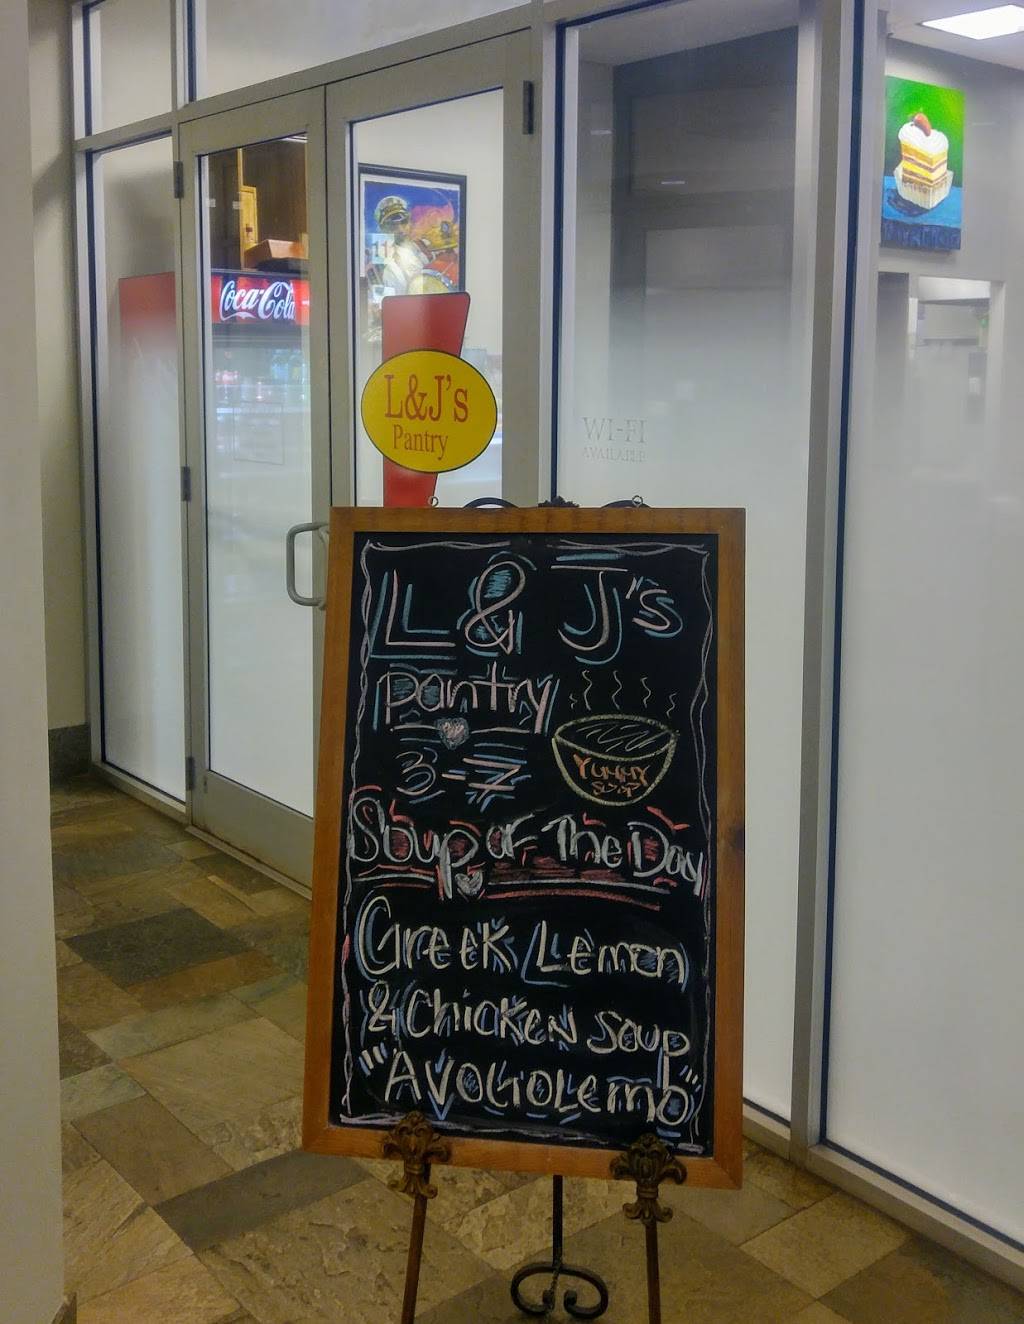 Coca-Cola
11
L&J's
Pantry
WI-FI
AVAILABLE
L & J's
pantry
3-7
YUMMY
SOUP
Soup of The Day
Greek Lemon
& Chicken Soup
"Avogolemo"